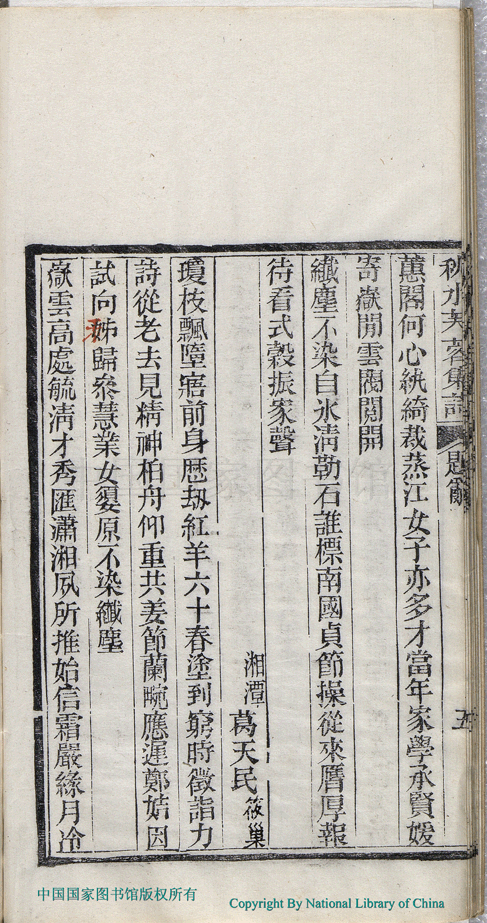 秋水芙蓉集詩 題辭 五
蕙閣何心紈綺裁蒸江女子亦多才當年家學承賢媛
寄嶽開雲閣閱開
纖塵不染自氷淸勒石誰標南國貞節操從來膺厚報
待看式穀振家聲
湘潭 葛天民 筱巢
瓊枝飄墮寤前身歷刼紅羊六十春塗到窮時徵詣力
詩從老去見精神柏舟仰重共姜節蘭畹應遲鄭姞因
試向姊歸叅慧業女嬃原不染纖塵
嶽雲高處毓淸才秀匯瀟湘夙所推始信霜嚴緣月冷
中国国家图书馆版权所有
Copyright By National Library of China